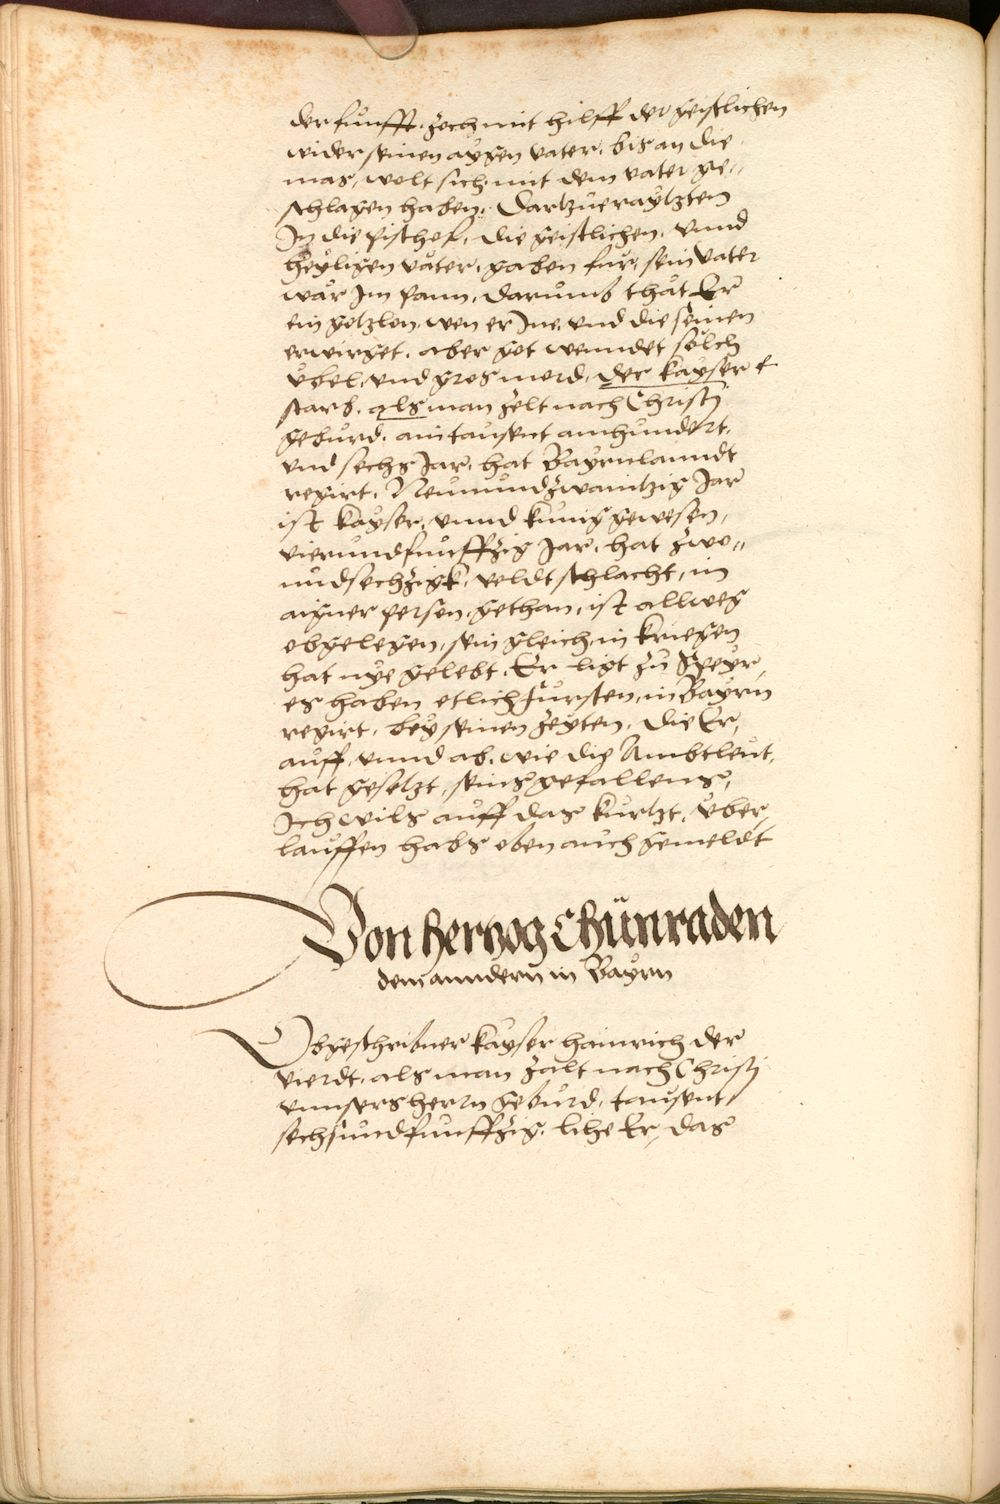 der funfft. zoch mit hilff der geistlichen
wider seinen aygen vater. bis an die
mas, wolt sich. mit dem vater ge=
schlagen haben. Dartzue raytzten
In die pischof. die geistlichen. vnnd
heyligen väter, gaben für, sein vater
wär Im pann, darumb thät Er
ein gotzlon, wen er Jne. vnd die seinen
erwirget. aber got wenndet solch
übel, vnd gros mord, der kayser
starb. als man zelt nach Christj
geburd. ain tausent ainhundert.
vnd sechs Jar. hat Bayrnlanndt
regirt. Neunundzwaintzig Jar
ist kayser, vnnd kunig gewesen,
vierundfunffzig Jar. hat zwo=
undsechzigk. veldtschlacht, in
aigner person. gethan, ist allweg
obgelegen, sein gleich, in kriegen
hat nye gelebt. Er ligt zu Speyr,
es haben etlich fürsten, in Bayrn
regirt. bey seinen zeyten. die Er,
auff, vnnd ab. wie die Ambtleut.
hat gesetzt, seins gefallens,
Ich wils auff das kurtzt, über
lauffen habs oben auch gemeldt
Von hertzog Chünraden
dem anndern in Bayrn
Obgeschribner kayser hainrich der
vierdt. als man zalt nach Christj
vnnsers herrn geburd. tausent
sechsundfunffzig. lihe Er, das